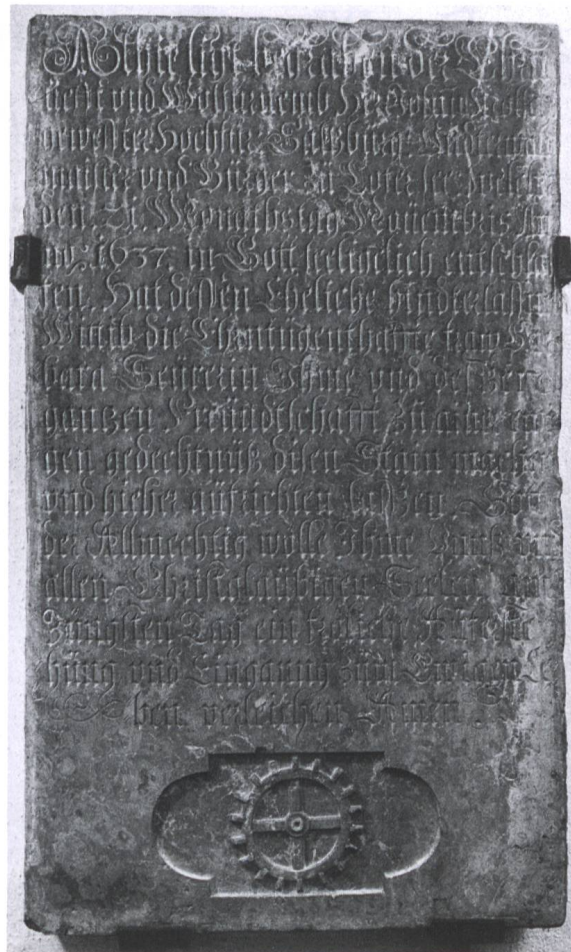 Alhie ligt begraben der Ehrn
uesst und Wolfürnemb Herr Johan
gewester Hochfür: Saltzburg:
und Bürger zu
den. 21. Monathstag Nouembris An
no: 1637. in Gott seeligelich entschla
fen, Hat dessen Eheliche hinderlassne
Wittib die Ehrntugenthaffte fraw Bar
bara Ihme und
gantzen Freündtschafft zu
gen gedechtnüß disen Stain machen
und hieher aufrichten lassen. Gott
der Allmechtig wolle Ihme Vnß und
allen Christglaubigen Seelen am
Jüngsten Tag ein fröliche Aufferste
hung und Eingang zum Ewigen Le
ben verleichen Amen.